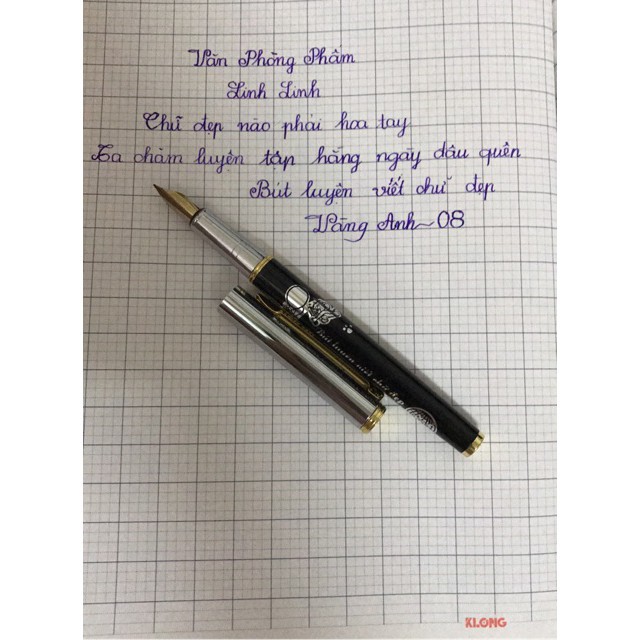 Văn Phòng Phẩm
Linh Linh
Chữ đẹp nào phải hoa tay
Ta chăm luyện tập hằng ngày đâu quên
Bút luyện viết chữ đẹp
Vàng Anh~08
Bút luyện viết chữ đẹp
KLONG